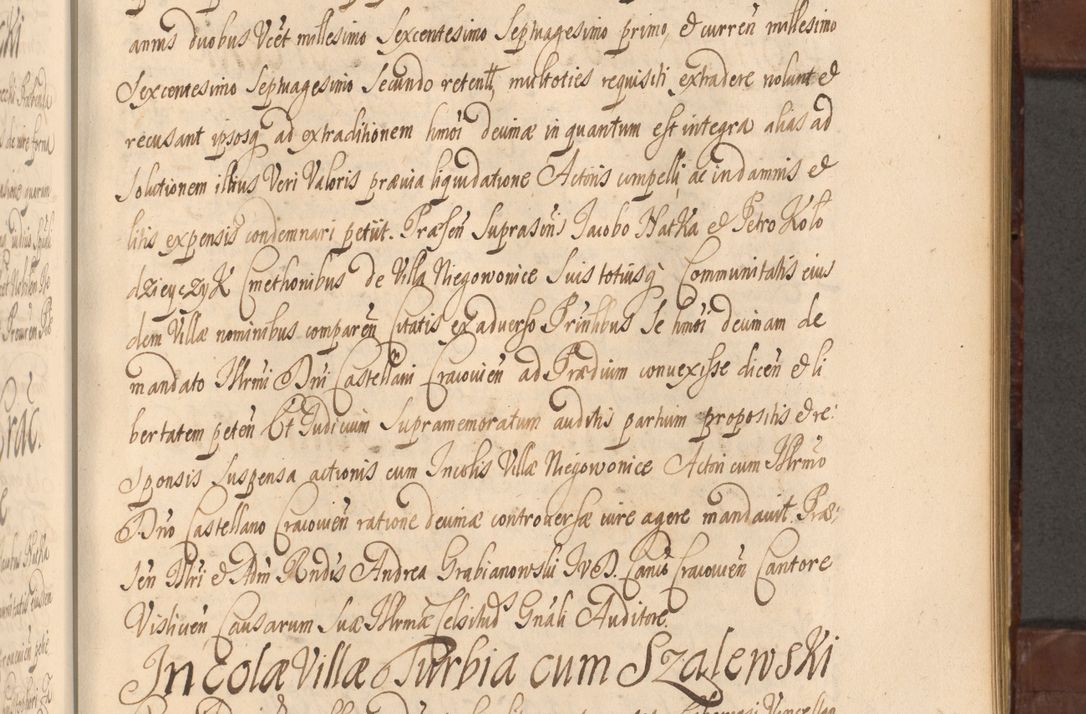 annis duobus Vcēt millesimo Sexcentesimo Septuagesimo primo, et curreñ millesimo
Sexcentesimo Septuagesimo Secundo retent, multoties requisiti extradere nolunt et
recusant ipsosq ad extraditionem hmōi decimæ in quantum est integra alias ad
Solutionem illius Veri Valoris prævia liquidatione Actoris compelli, ac in damnis et
litis expensis condemnari petiit. Præseñ Suprascriis Jacobo Hatka et Petro Kolo
dzieyczyk Cmethonibus de Villa Niegowonice Suis totiusq Communitatis eius
dem Villæ nominibus compareñ Citatis ex adverso Prntibus Se hmōi decimam de
mandato Illrmi Dni Castellani Cracovieñ ad Prædium convexisse diceñ et li
bertatem peteñ Et Judicium Supramemoratum auditis partium propositis et re:
Sponsis Suspensa actionis cum Incolis Villæ Niegowonice Actori cum Illrmo
Dno Castellano Cracovieñ ratione decimæ controversæ iure agere mandavit. Præ,
Señ Illri et Adm Rndis Andrea Grabianowski JVD. Canco Cracovieñ Cantore
Vislicieñ Causarum Suæ Illrmæ Celsitudis Gnāli Auditore.
Incolæ Villæ Turbia cum Szalewski